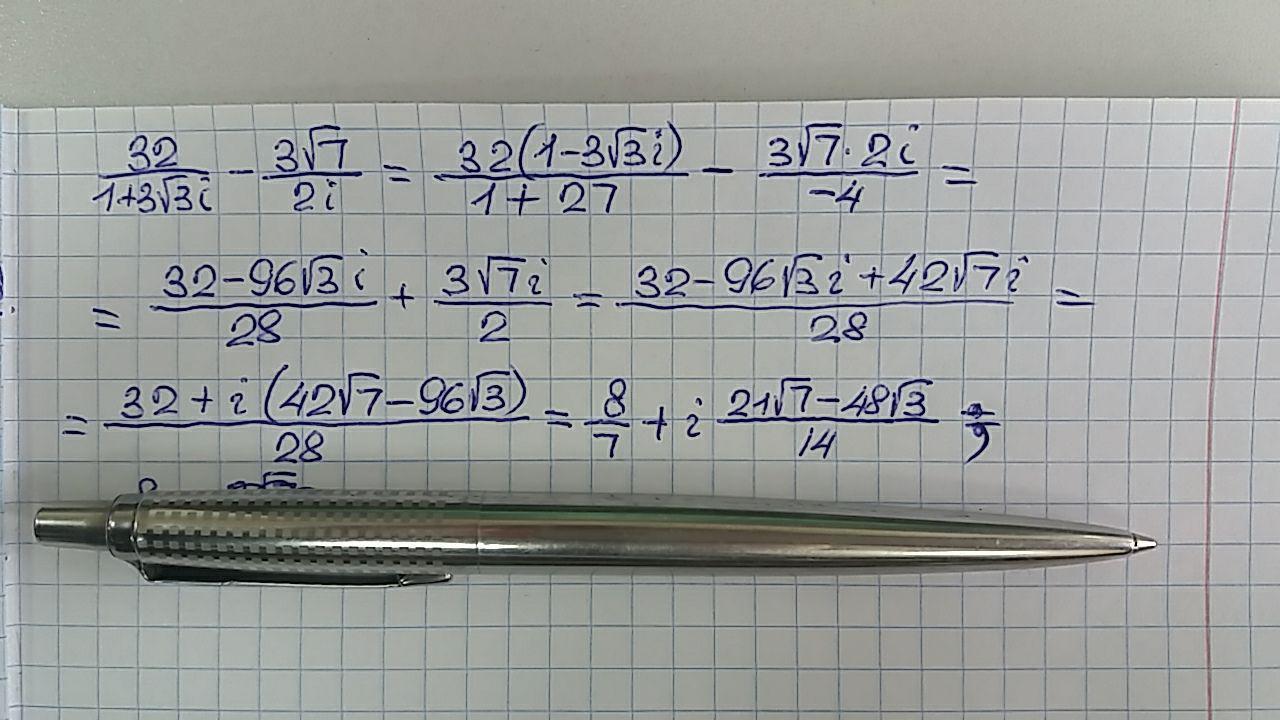 32/(1+3√3i) - 3√7/2i = 32(1-3√3i)/(1+27) - 3√7·2i/-4 =
= (32-96√3i)/28 + 3√7i/2 = (32-96√3i+42√7i)/28 =
= (32+i(42√7-96√3))/28 = 8/7 + i (21√7-48√3)/14